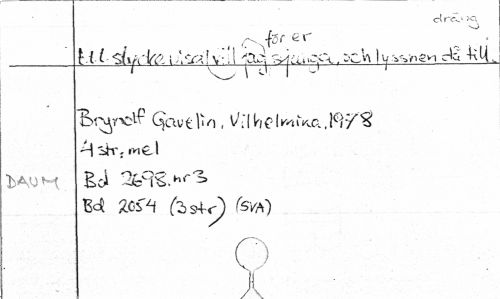 dräng
för er
Ett stycke visa vill jag sjunga, och lyssnen då till.
Brynolf Gavelin, Vilhelmina, 1978
4 str, mel
DAUM Bd 2698. nr 3
Bd 2054 (3 str) (SVA)